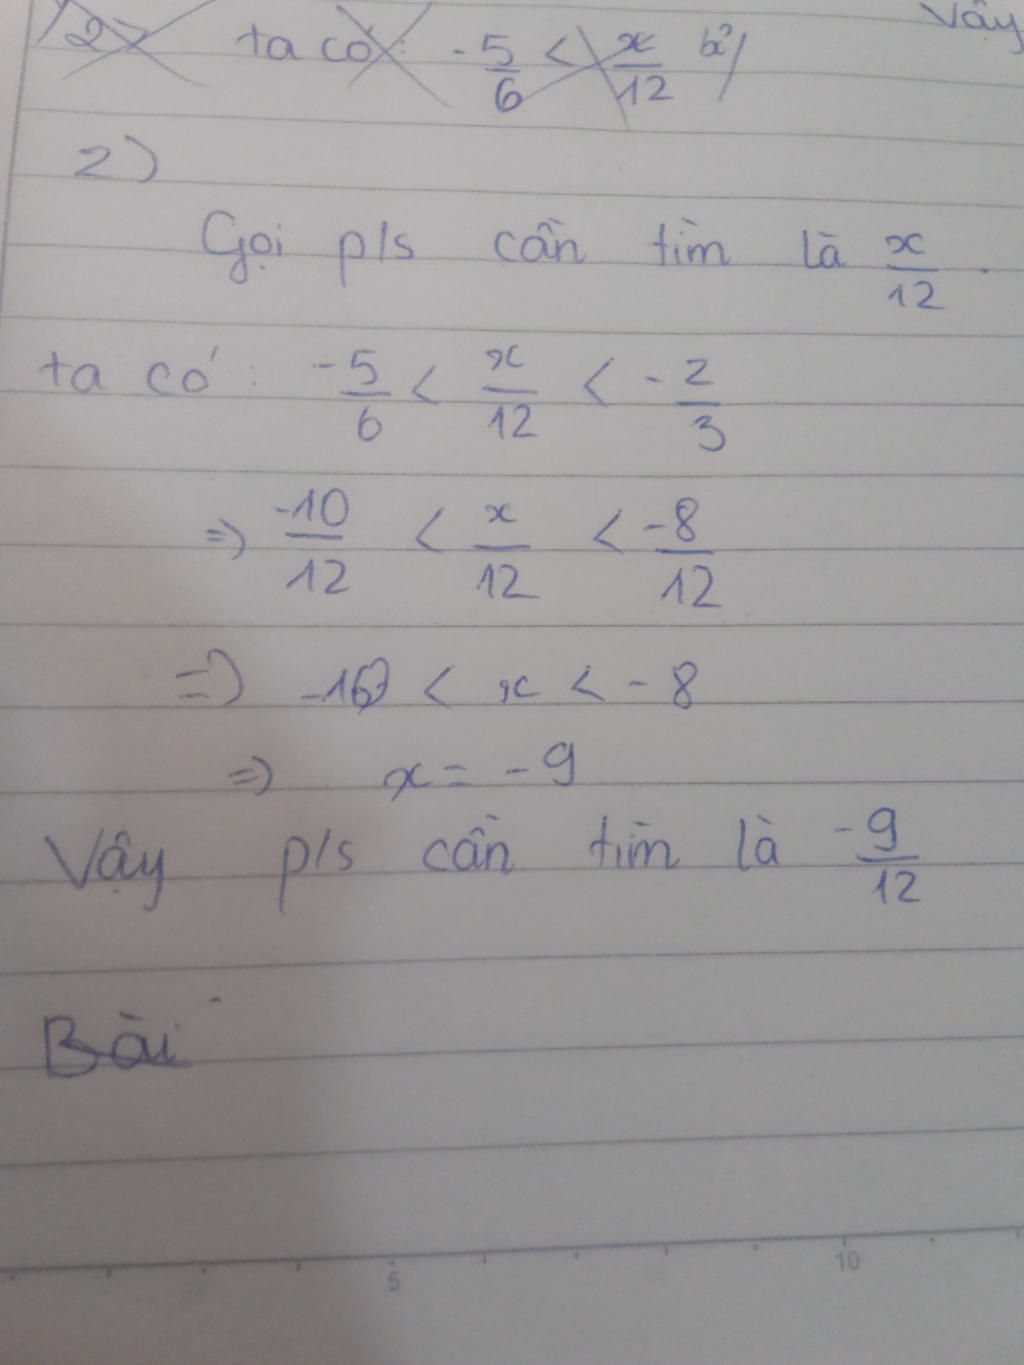 Vậy
2) ta có: -5/6 < x/12
2)
Gọi p/s cần tìm là x/12.
ta có: -5/6 < x/12 < -2/3
=> -10/12 < x/12 < -8/12
=> -10 < x < -8
=> x = -9
Vậy p/s cần tìm là -9/12
Bài
5 10